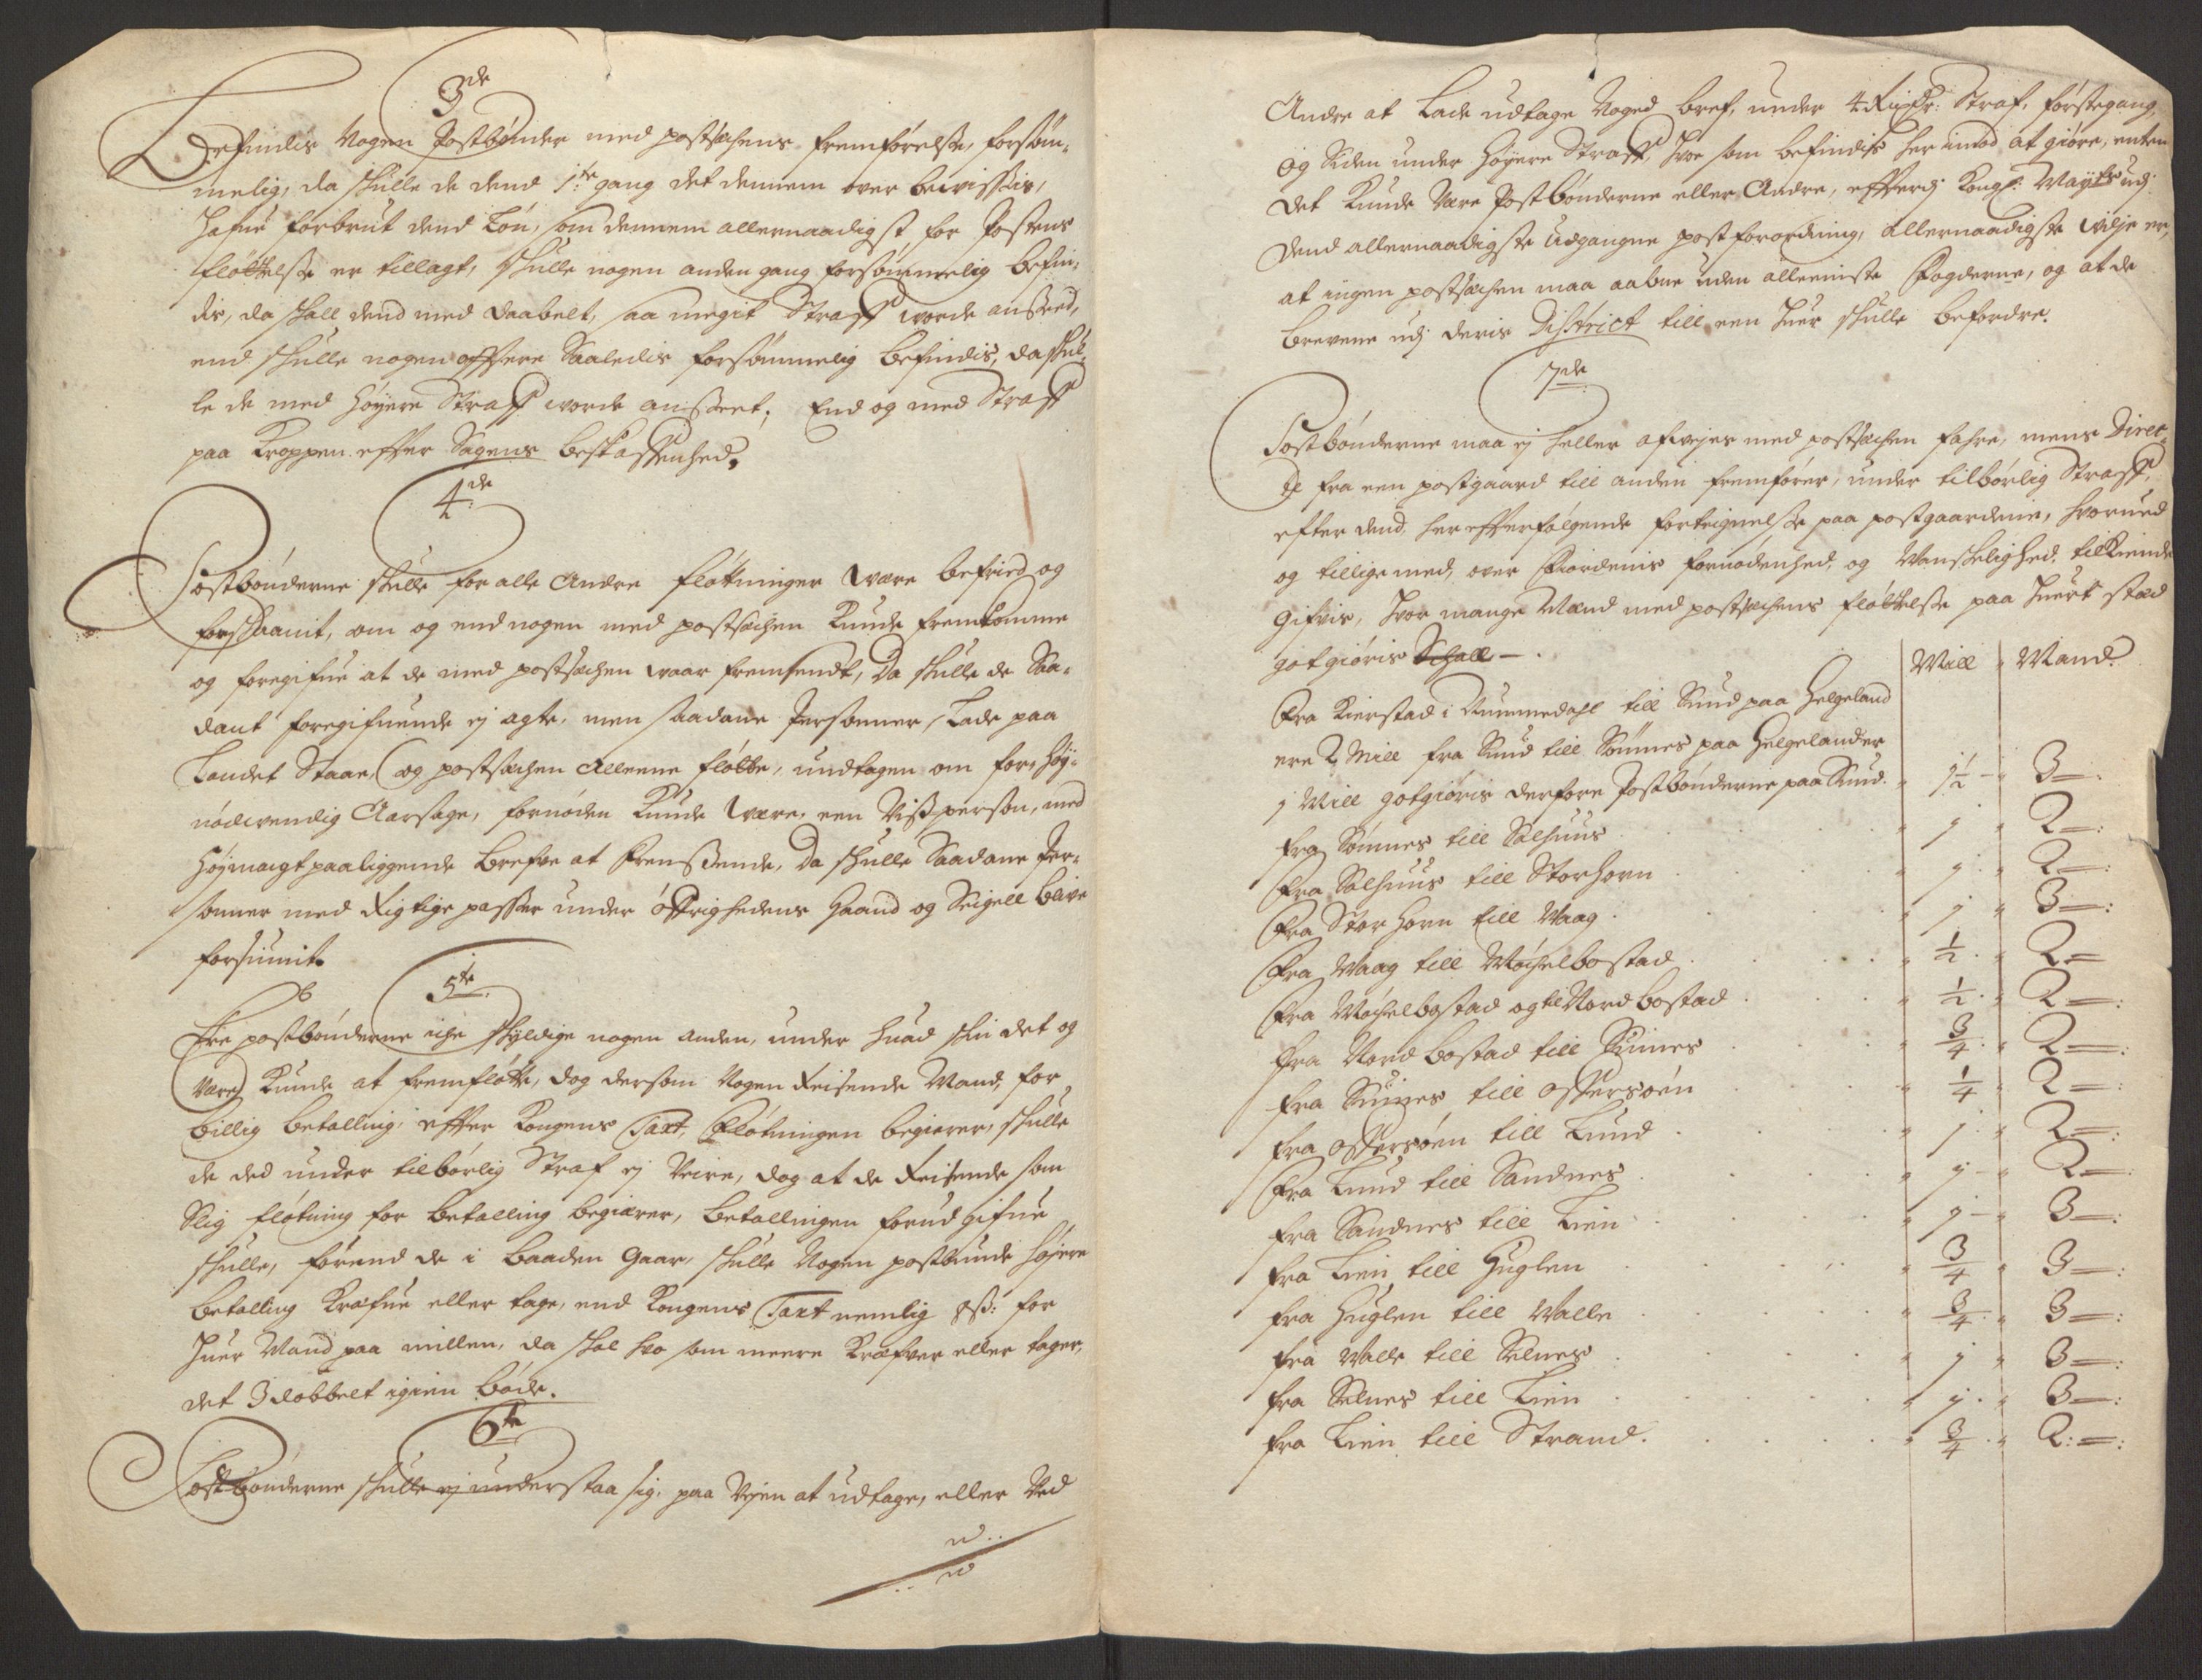 3de
Befindis Nogen Postbønder med postsechens fremførelse, forsøm-
melig, da skulle de dend 1te gang det dennem over bevisses,
hafue forbrut dend Løn, som dennem allernaadigst for Postens
fløttelse er tillagt, skulle nogen anden gang forsømmelig befin-
dis, da skall dend med daabelt, saa megit Straff worde anseed,
end skulle nogen offtere Saaledis forsømmelig befindis, da skul-
le de med høyere Straff worde anseet, End og med Straff
paa Kroppen effter Sagens beskaffenhed.
4de
Postbønderne skulle for alle Andre fløttninger være befried og
forskaanit, om og end nogen med postsechen Kunde fremkomme
og foregifue at de med postsechen waar fremsendt, Da skulle de Saa-
dant foregifuende ej agte, men saadane Personner, Lade paa
Landet Staae, og postsechen Alleene fløtte, undtagen om for, høy-
nødwendig Aarsage, fornøden Kunde være, een Viss person, med
høymagtpaaliggende brefve at Fremsende, Da skulle Saadane Per-
sonner med Rigtige passer under øffrighedens Haand og Seigell blive
forsiunit.
5te
Ere postbønderne iche skyldige nogen anden, under huad skin det og
være Kunde at fremfløtte, dog dersom Nogen Reisende Mand, for
billig betalling, effter Kongens Taxt, Fløtningen begierer, skulle
de ded under tilbørlig Straf ej Veire, dog at de Reisende som
Slig fløtning for betalling begiærer, betallingen forud gifue
skulle, førend de i baaden Gaar, skulle Nogen postbunde høiere
betalling Kræfue eller tage, end Kongens Taxt nemlig 8ß: for
huer Mand paa millen, da skal hvo som meere Kræfver eller tager,
det 3dobbelt igien bøde.
6te
Postbønderne skulle ej understaa sig, paa Vejen at udtage, eller Ved
Andre at Lade udtage Noged bref, under 4 Rixdr: Straf, førstegang,
og Siden under høyere Straff, hvo som befindis her imod at giøre, enten
det Kunde være Postbønderne eller Andre, effterdj Kongl: Mayts udj
dend allernaadigste udgangne postforordning, allernaadigste vilje er,
at ingen postsechen maa aabne uden alleeniste Fogderne, og at de
brevene udj deris District till een huer skulle befordre.
7de
Postbønderne maa ej heller afvejes med postsechen fahre, mens Direc-
te fra een postgaard till anden fremfører, under tilbørlig Straff,
efter dend, her effterfølgende fortegnelse paa postgaardene, hvorued
og tilligemed, over Fiordenis fornødenhed, og Vanskelighed, tilkiende
gifvis, hvor mange Mænd med postsechens fløttelse paa huert stæd
godgiøris Schall —.
Mill Mand
Fra Kierstad i Nummedahl till Sund paa Helgeland
ere 2 Mill fra Sund till Sømnes paa Helgeland er
1 Mill godgiøris derfore Postbønderne paa Sund. 1½ 3
fra Sømnes till Salhuus 1 2
Fra Salhuus till Storhorn 1 2
Fra Storhorn till Vaag 1 3
Fra Vaag till Møchelbostad ½ 2
Fra Møchelbostad og til Nordbostad ½ 2
Fra Nordbostad till Suines ¾ 2
fra Suines till Offersøen ¼ 2
fra Offersøen till Lund 1 2
Fra Lund till Sandnes 1 2
fra Sandnes till Lien 1 3
fra Lien till Huglen ¾ 3
fra Huglen till Valle ¾ 3
fra Valle till Selnes 1 3
fra Selnes till Lien 1 3
fra Lien till Strand. ¾ 2